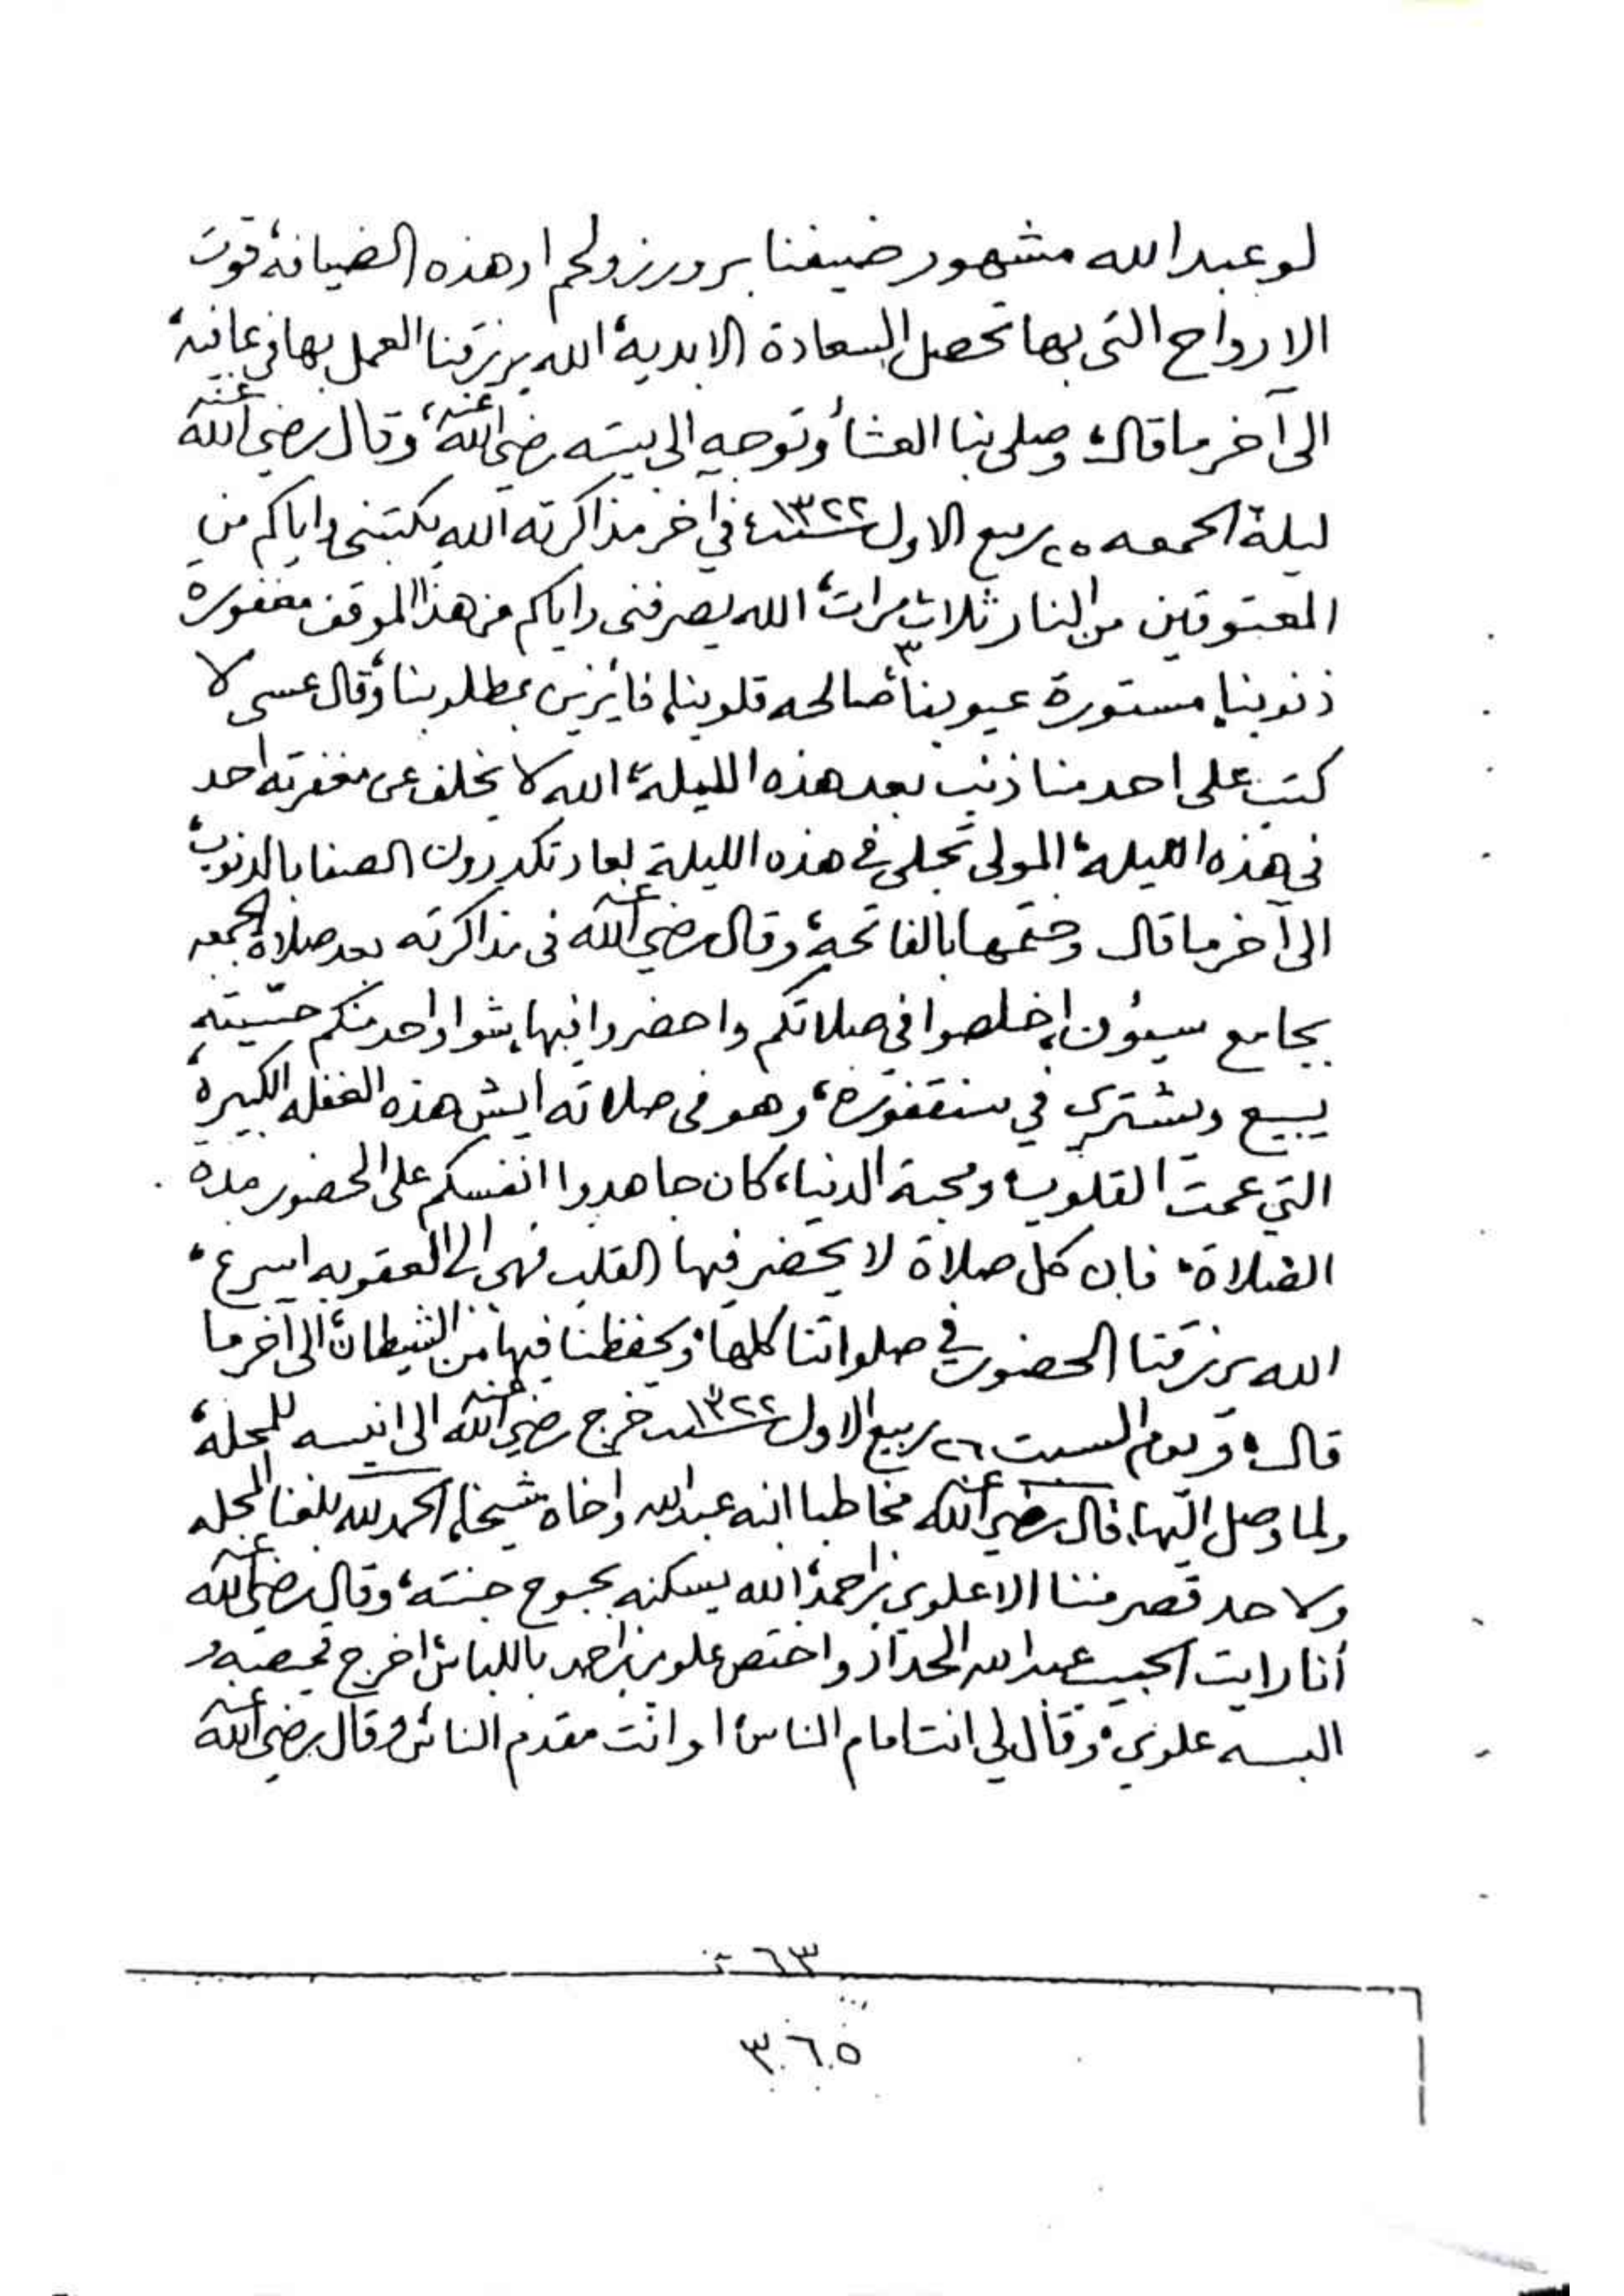 لو عبدالله مشهور ضيفنا برورز ولحم او هذه الضيافة، قوت
الارواح التي بها تحصل السعادة الابدية، الله يرزقنا العمل بها في عافية،
الى آخر ما قال، وصلى بنا العشاء وتوجه الى بيته رضي الله عنه، وقال رضي الله عنه
ليلة الجمعه ٢٥ ربيع الاول سنة ١٣٢٢، في آخر مذاكرته الله يكتبني واياكم من
المعتوقين من النار ثلاث مرات، الله يصرفني واياكم من هذا الموقف مغفورة
ذنوبنا، مستورة عيوبنا ٣ صالحه قلوبنا، فائزين بمطلوبنا، وقال عسى لا
كتب على احد منا ذنب بعد هذه الليلة، الله لا يخلف عن مغفرته احد
في هذه الليلة، المولى تجلى في هذه الليلة لعاد تكدرون الصفا بالذنوب،
الى آخر ما قال وختمها بالفاتحة، وقال رضي الله عنه في مذاكرته بعد صلاة الجمعه
بجامع سيؤن، إخلصوا في صلاتكم واحضروا فيها، شوا واحد منكم
يبيع ويشتري في سنقفورة، وهو في صلاته ايش هذه الغفله الكبيرة،
التي عمت القلوب، ومحبة الدنيا، كان جاهدوا انفسكم على الحضور مدة
الصلاة، فان كل صلاة لا يحضر فيها القلب فهي الى العقوبه اسرع،
الله يرزقنا الحضور في صلواتنا كلها، ويحفظنا فيها من الشيطان، الى آخر ما
قال، ويوم السبت ٢٦ ربيع الاول سنة ١٣٢٢ خرج رضي الله عنه الى انيسه للمجلة،
ولما وصل اليها، قال رضي الله عنه مخاطبا ابنه عبدالله واخاه شيخنا، الحمد لله بلغنا المجله
ولا حد قصر مننا الا علوي بن احمد، الله يسكنه بحبوح جنته، وقال رضي الله عنه
أنا رايت الحبيب عبدالله الحداد واختص علوي بن احمد باللباس، اخرج قميصه و
البسه علوي، وقال لي انت امام الناس، او انت مقدم الناس، وقال رضي الله عنه
٦٣
٣٦٥